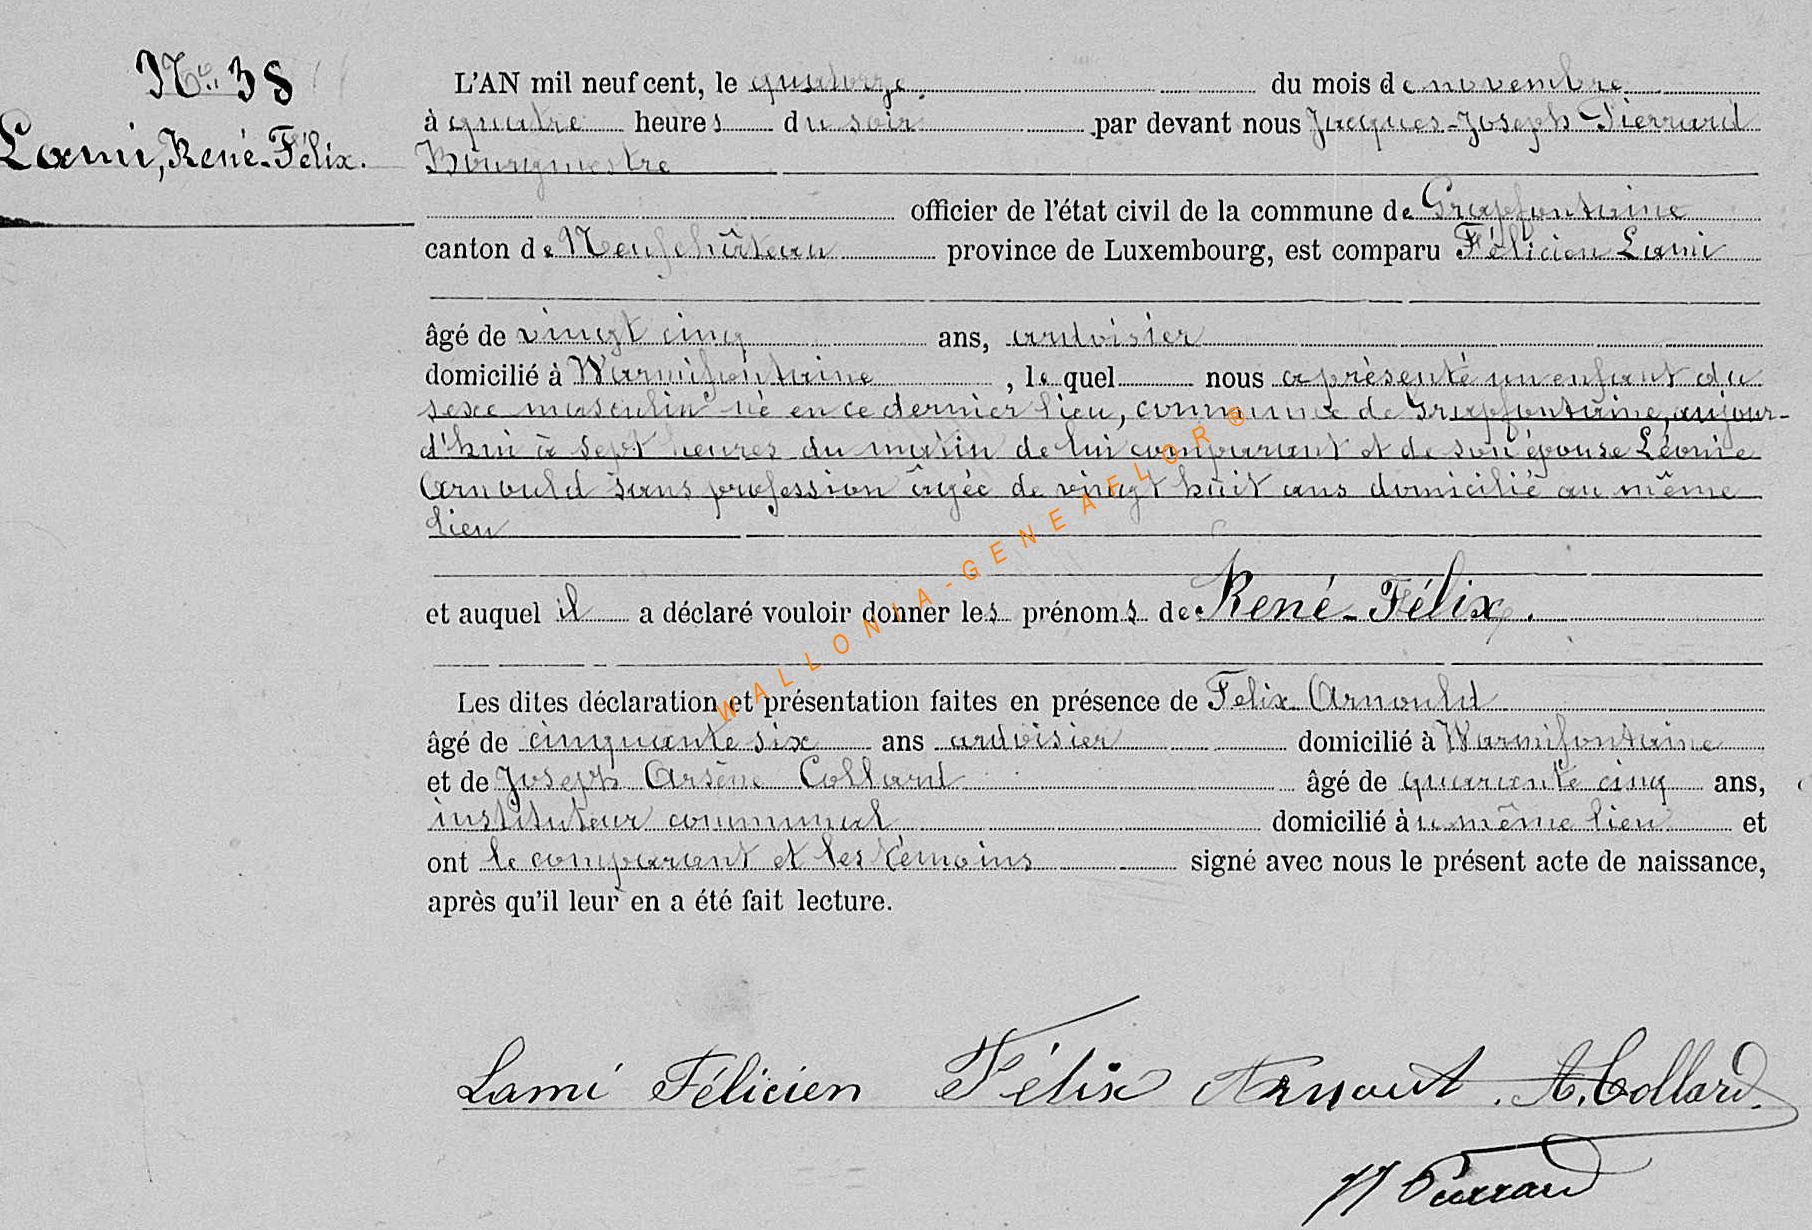 No. 38
Lami, René-Félix.
L'AN mil neuf cent, le quatorze, du mois de novembre
à quatre heures du soir par devant nous Jacques-Joseph Pierrard
Bourgmestre
officier de l'état civil de la commune de Grapfontaine
canton de Neufchâteau province de Luxembourg, est comparu Félicien Lami
âgé de vingt cinq ans, ardoisier
domicilié à Warmifontaine, lequel nous a présenté un enfant du
sexe masculin né en ce dernier lieu, commune de Grapfontaine, aujour-
d'hui à sept heures du matin de lui comparant et de son épouse Léonie
Arnould sans profession âgée de vingt huit ans domicilié au même
lieu
et auquel il a déclaré vouloir donner les prénoms de René-Félix.
Les dites déclaration et présentation faites en présence de Felix Arnould
âgé de cinquante six ans ardoisier domicilié à Warmifontaine
et de Joseph Arsène Collard âgé de quarante cinq ans,
instituteur communal domicilié au même lieu et
ont le comparant et les témoins signé avec nous le présent acte de naissance,
après qu'il leur en a été fait lecture.
Lami Félicien Félix Arnout A. Collard
JJ Pierrard
WALLONIA-GENEAFLOR ®